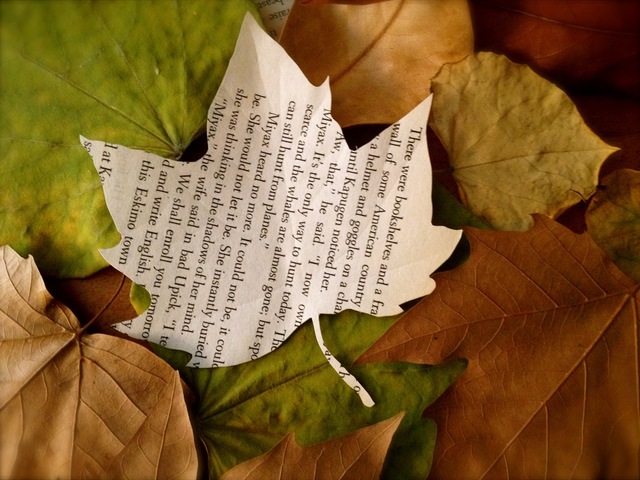 There were bookshelves and a fra
wall of some American country
a helmet and goggles on a cha
ntil Kapugen noticed her
Aw, that," he said, "I now own
Miyax. It's the only way to hunt today. The
scarce and the whales are almost gone; but spe
can still hunt from planes."
Miyax heard no more. It could not be, it could
be. She would not let it be. She instantly buried w
she was thinking in the shadows of her mind.
"Miyax," the wife said in bad Upick, "I
We shall enroll you tomorro
d and write English.
this Eskimo town
d at K